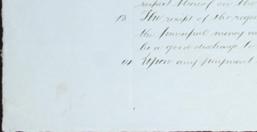 respect thereof on the
13 The receipt of the
the principal money
be a good discharge to
14 Upon any payment